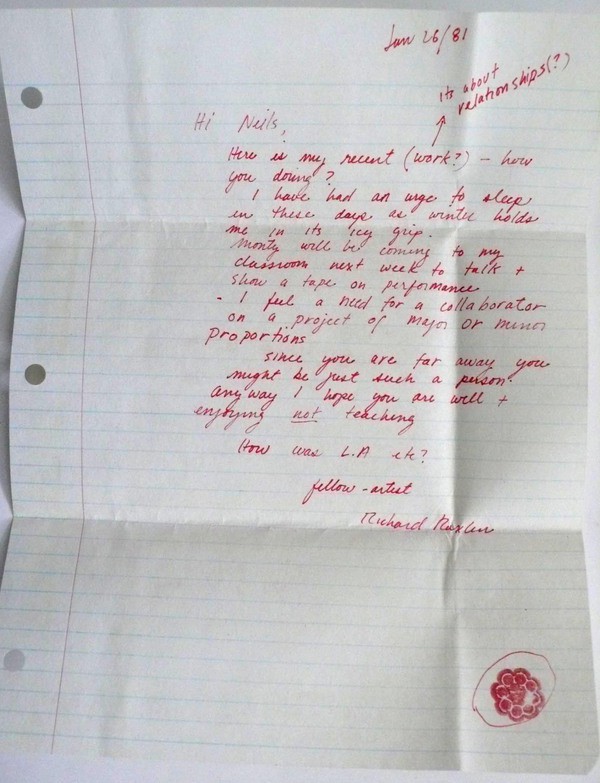 Jan 26/81
its about
relationships(?)
Hi Neils,
Here is my recent (work?) - how
you doing?
I have had an urge to sleep
in these days as winter holds
me in its icy grip.
Monty will be coming to my
classroom next week to talk +
show a tape on performance
- I feel a need for a collaborator
on a project of major or minor
proportions
since you are far away you
might be just such a person.
Anyway I hope you are well +
enjoying not teaching
How was L.A etc?
fellow-artist
Richard